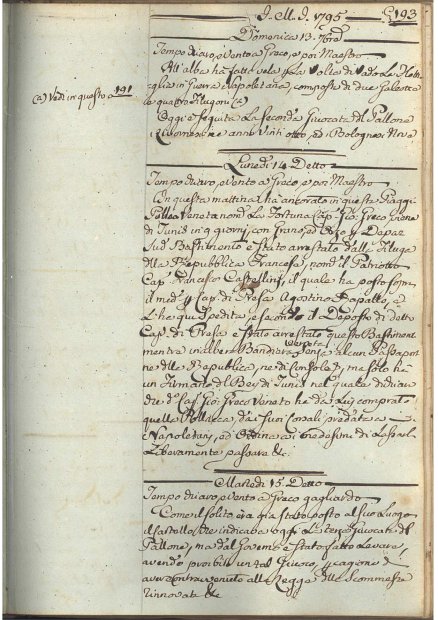 J. M. J. 1795 193
Domenica 13. 7bre
Tempo chiaro, e vento a Greco, e poi Maestro
All'alba ha fatto vela p. la volta di Vado la
in Guerra Napoletana, composta di due Galeotte
e quattro Filugoni (a)
(a) Vedi in questo a 191
Oggi è seguita la seconda Giuocata del Pallone
i Livornesi e anno vinti otto, ed i Bolognesi
Lunedì 14. Detto
Tempo chiaro, e vento a Greco, e poi Maestro
In questa mattina ha ancorato in queste Piaggi
Veneta nom. La Fortuna Cap. Gio: Greco, viene
di Tunis in 9 giorni, con Grano, ed Orzo p.
Sud.o Bastimento è stato arrestato dalla Filuga
della Repubblica Francese, nom. il Patriotto
Cap. Francesco Castellini, il quale ha posto sopra
il med. p. Cap. di Presa Agostino Rapallo, e
l'ha qui spedito, e secondo il Deposto di detto
Cap. di Presa è stato arrestato questo Bastimento
mentre inalberava Bandiera Veneta senza alcun Passapor
ne della Repubblica, ne di Console, ma solo ha
un Firmano del Bey di Tunis nel quale dichiara
che d.o Cap. Gio: Greco Veneto ha da Lui comprato
quella Pollacca, da' suoi Corsali predata a
Napoletani, ed ordina a' medesimi di lasciarlo
liberamente passare &c.
Martedì 15. Detto
Tempo chiaro, e vento a Greco gagliardo
Come il solito era già stato posto al suo Luogo
il Cartello, che indicava oggi la terza Giuocata del
Pallone, ma dal Governo è stato fatto levare,
avendo proibito un tal Giuoco, p. cagione di
aver contravvenuto alle Legge delle Scommesse
rinnovate &c.